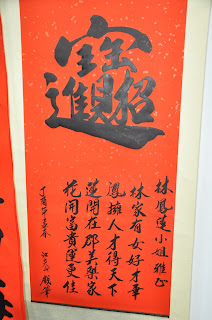 招財進寶
林鳳蓮小姐雅正
林家有女好才華
鳳擁人才得天下
蓮開在郡美梨家
花開富貴運更佳
丁酉年